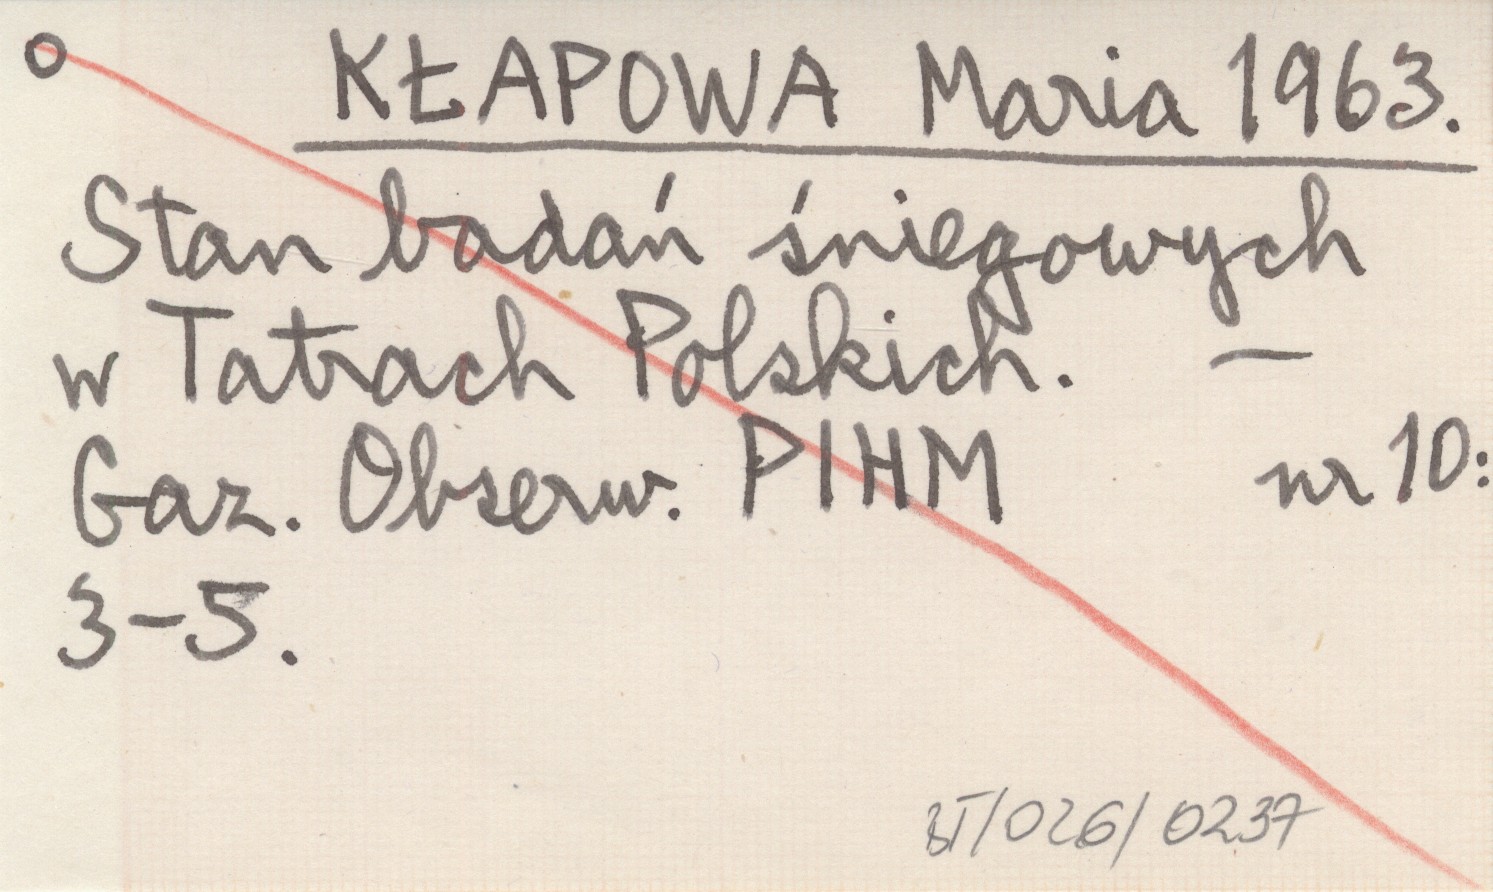 KŁAPOWA Maria 1963.
Stan badań śniegowych
w Tatrach Polskich. —
Gaz. Obserw. PIHM nr 10:
3-5.
BT/026/0237